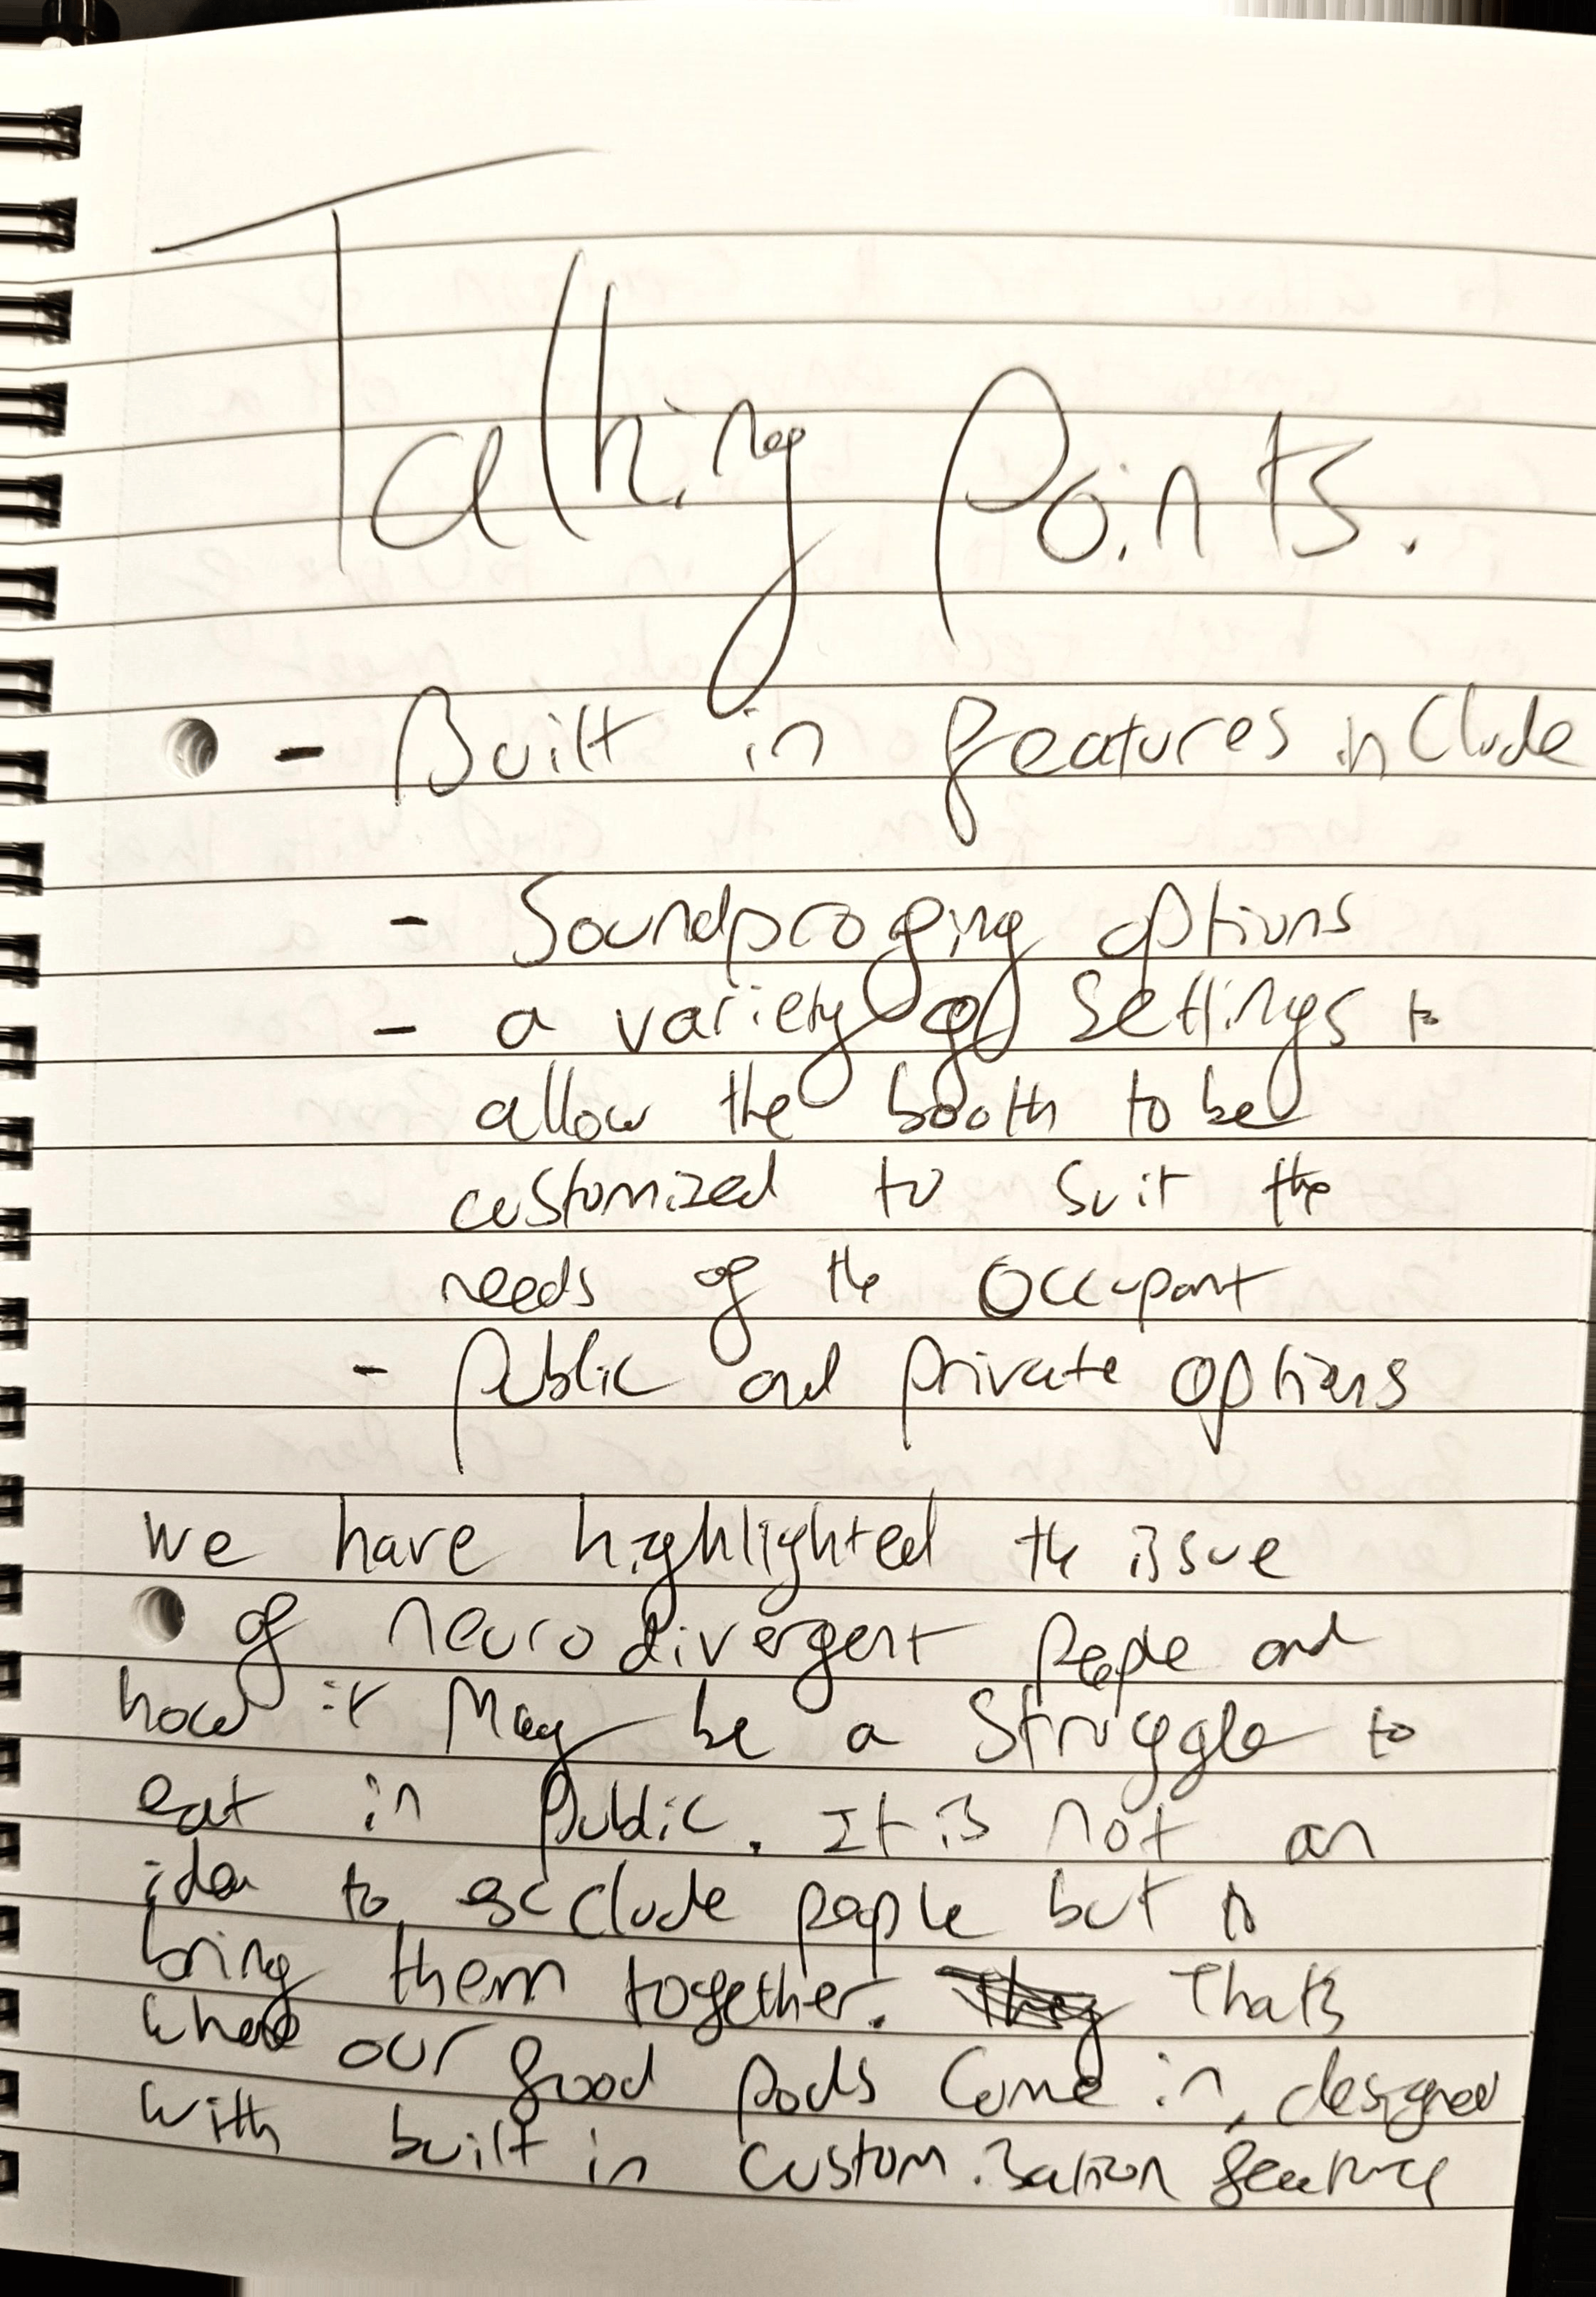 Talking Points.
- Built in features include
- Soundproofing options
- a variety of settings to
allow the booth to be
customized to suit the
needs of the occupant
- public and private options
we have highlighted the issue
of neurodivergent people and
how it may be a struggle to
eat in public. It is not an
idea to exclude people but to
bring them together. They Thats
where our food pods come in, designed
with built in customisation features